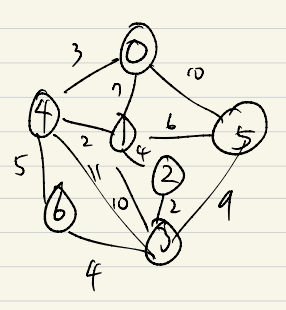 3
0
10
7
4
2
1
6
5
4
5
11
2
10
2
9
6
3
4